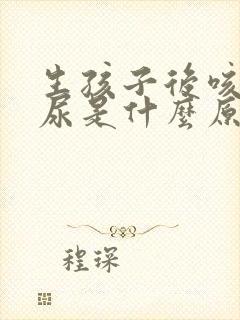 生孩子後咳
尿是什麼原
程琛